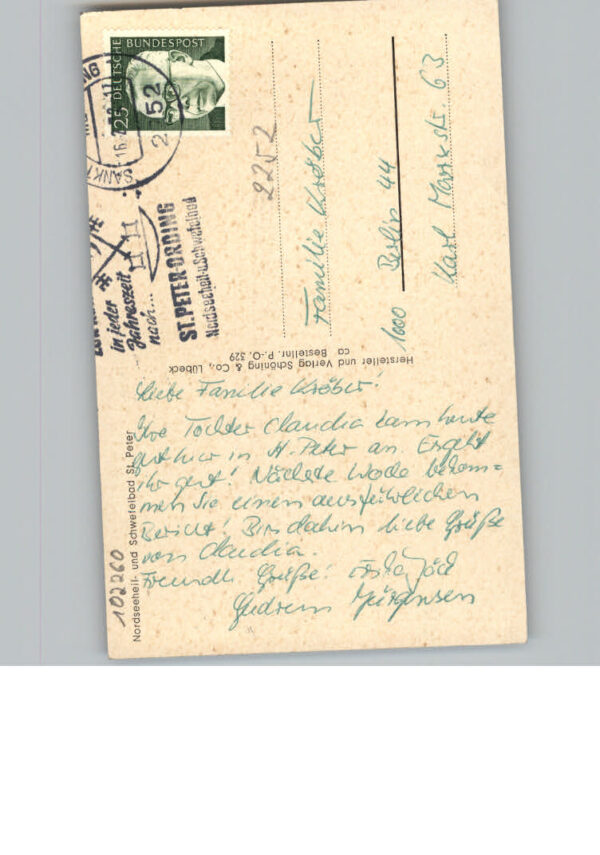 DEUTSCHE BUNDESPOST
25
SANKT
16.
2252
in jeder
Jahreszeit
nach...
ST. PETER-ORDING
Nordseeheil-u. Schwefelbad
2252
Familie Kröber
1000 Berlin 44
Karl Marx str. 63
Hersteller und Verlag Schöning & Co., Lübeck
ca Bestellnr. P.-O. 329
Liebe Familie Kröber!
Ihre Tochter Claudia kam heute
gut hier in St. Peter an. Es geht
ihr gut! Nächste Woche bekom=
men Sie einen ausführlichen
Bericht! Bis dahin liebe Grüße
von Claudia.
Freundl. Grüße!
Gudrun Jürgensen
102260
Nordseeheil- und Schwefelbad St. Peter